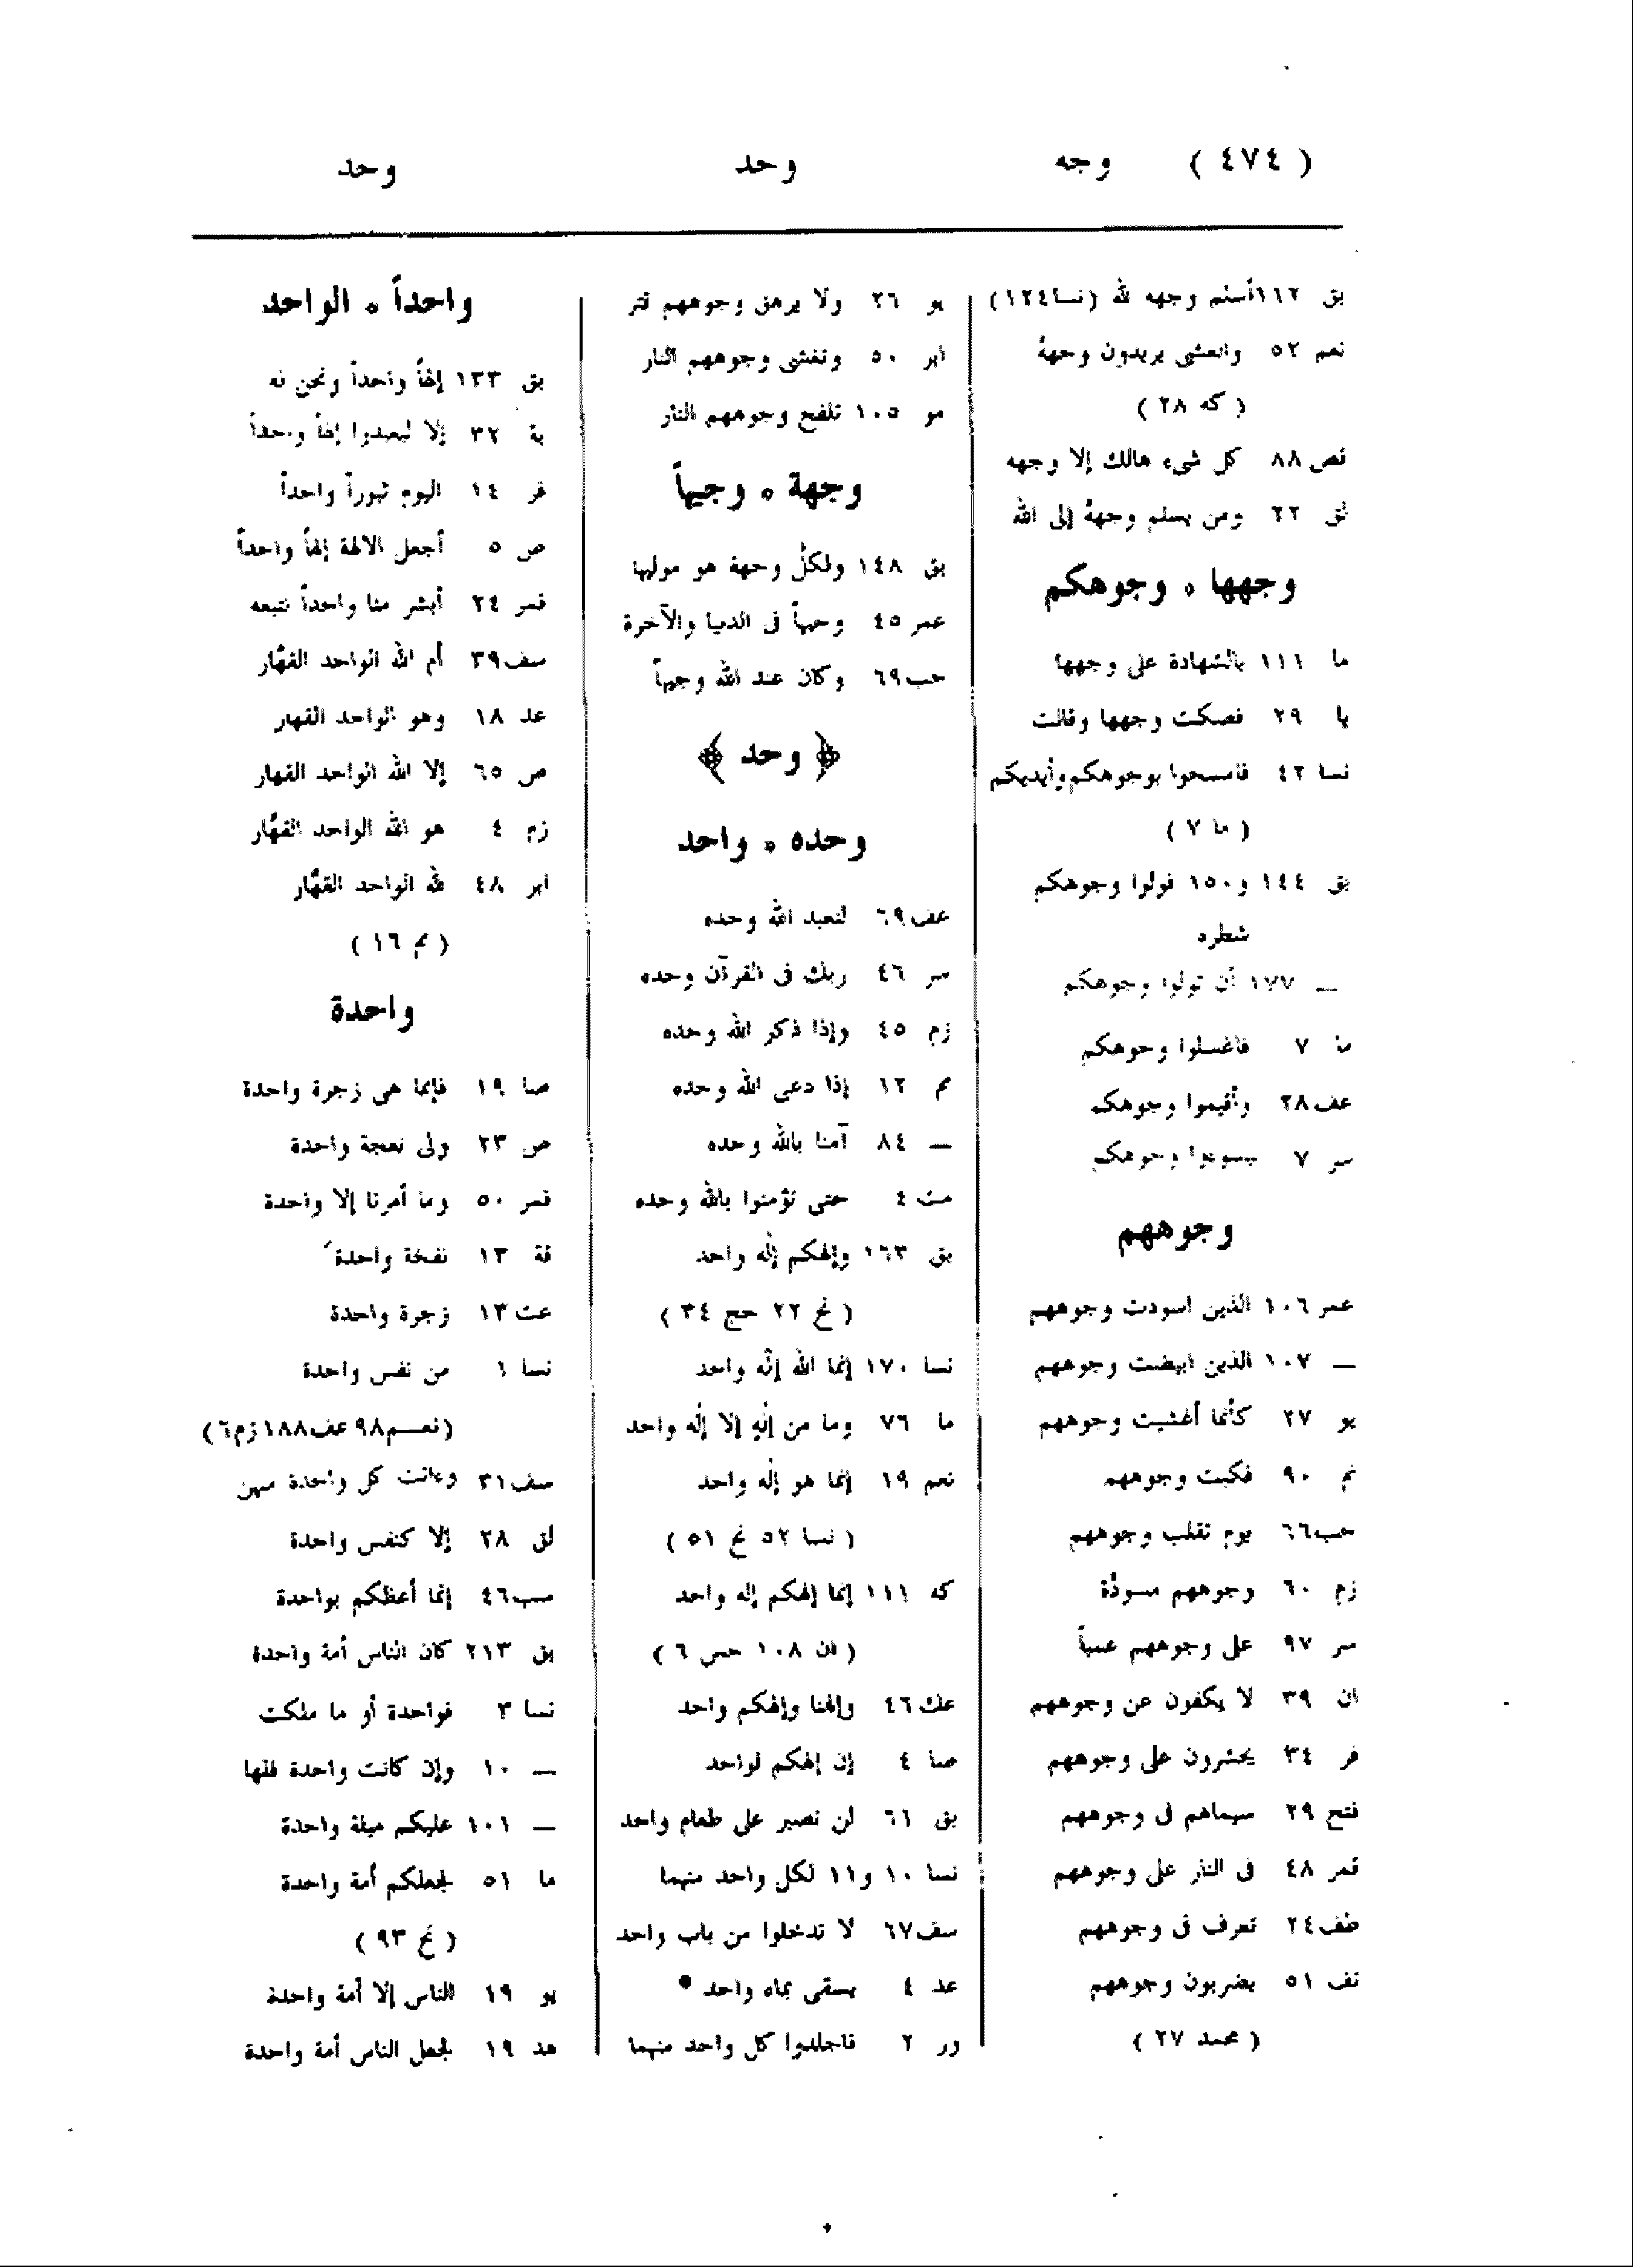 ( ٤٧٤ ) وجه وحد وحد
بق ١١٢ أسلم وجهه لله (نسا ١٢٤)
نعم ٥٢ والعشى يريدون وجهه
( كه ٢٨ )
قص ٨٨ كل شىء هالك إلا وجهه
لق ٢٢ ومن يسلم وجهه إلى الله
وجهها ٥ وجوهكم
ما ١١١ بالشهادة على وجهها
يا ٢٩ فصكت وجهها وقالت
نسا ٤٢ فامسحوا بوجوهكم وأيديكم
( ما ٧ )
بق ١٤٤ و١٥٠ فولوا وجوهكم
شطره
— ١٧٧ أن تولوا وجوهكم
ما ٧ فاغسلوا وجوهكم
عف ٢٨ وأقيموا وجوهكم
سر ٧ ليسوءوا وجوهكم
وجوههم
عمر ١٠٦ الذين اسودت وجوههم
— ١٠٧ الذين ابيضت وجوههم
يو ٢٧ كأنما أغشيت وجوههم
نم ٩٠ فكبت وجوههم
حب ٦٦ يوم تقلب وجوههم
زم ٦٠ وجوههم مسودّة
سر ٩٧ على وجوههم عمياً
ان ٣٩ لا يكفون عن وجوههم
فر ٣٤ يحشرون على وجوههم
فتح ٢٩ سيماهم فى وجوههم
قمر ٤٨ فى النار على وجوههم
طف ٢٤ تعرف فى وجوههم
نف ٥١ يضربون وجوههم
( محمد ٢٧ )
يو ٢٦ ولا يرهق وجوههم قتر
ابر ٥٠ وتغشى وجوههم النار
مو ١٠٥ تلفح وجوههم النار
وجهة ٥ وجيهاً
بق ١٤٨ ولكلّ وجهة هو موليها
عمر ٤٥ وجيهاً فى الدنيا والآخرة
حب ٦٩ وكان عند الله وجيهاً
﴿ وحد ﴾
وحده ٥ واحد
عف ٦٩ لنعبد الله وحده
سر ٤٦ ربك فى القرآن وحده
زم ٤٥ وإذا ذكر الله وحده
مم ١٢ إذا دعى الله وحده
— ٨٤ آمنا بالله وحده
مت ٤ حتى تؤمنوا بالله وحده
بق ١٦٣ وإلهكم إله واحد
( نح ٢٢ حج ٣٤ )
نسا ١٧٠ إنما الله إله واحد
ما ٧٦ وما من إلهٍ إلا إله واحد
نعم ١٩ إنما هو إله واحد
( نسا ٥٢ نح ٥١ )
كه ١١١ إنما إلهكم إله واحد
( ان ١٠٨ حس ٦ )
عك ٤٦ وإلهنا وإلهكم واحد
صا ٤ إن إلهكم لواحد
بق ٦١ لن نصبر على طعام واحد
نسا ١٠ و١١ لكل واحد منهما
سف ٦٧ لا تدخلوا من باب واحد
عد ٤ يسقى بماء واحد •
ور ٢ فاجلدوا كل واحد منهما
واحداً ٥ الواحد
بق ١٣٣ إلهاً واحداً ونحن له
بة ٣٢ إلا ليعبدوا إلهاً واحداً
فر ١٤ اليوم ثبوراً واحداً
ص ٥ أجعل الآلهة إلهاً واحداً
قمر ٢٤ أبشر منا واحداً نتبعه
سف ٣٩ أم الله الواحد القهّار
عد ١٨ وهو الواحد القهار
ص ٦٥ إلا الله الواحد القهار
زم ٤ هو الله الواحد القهّار
ابر ٤٨ لله الواحد القهّار
( مم ١٦ )
واحدة
صا ١٩ فإنما هى زجرة واحدة
ص ٢٣ ولى نعجة واحدة
قمر ٥٠ وما أمرنا إلا واحدة
قة ١٣ نفخة واحدة
عت ١٣ زجرة واحدة
نسا ١ من نفس واحدة
(نعم ٩٨ عف ١٨٨ زم ٦)
سف ٣١ وءاتت كل واحدة منهن
لق ٢٨ إلا كنفس واحدة
سب ٤٦ إنما أعظكم بواحدة
بق ٢١٣ كان الناس أمة واحدة
نسا ٣ فواحدة أو ما ملكت
— ١٠ وإن كانت واحدة فلها
— ١٠١ عليكم ميلة واحدة
ما ٥١ لجعلكم أمة واحدة
( نح ٩٣ )
يو ١٩ الناس إلا أمة واحدة
هد ١٩ لجعل الناس أمة واحدة